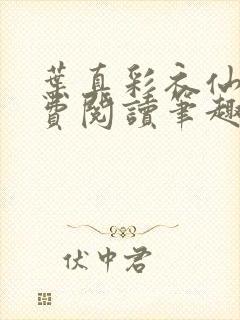 葉真彩衣仙
費閱讀筆趣
伏中君